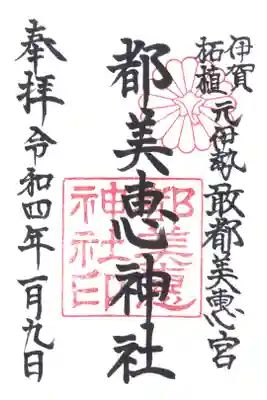 伊賀
柘植
元伊勢敢都美恵宮
都美恵神社
都美恵
神社印
奉拝令和四年一月九日